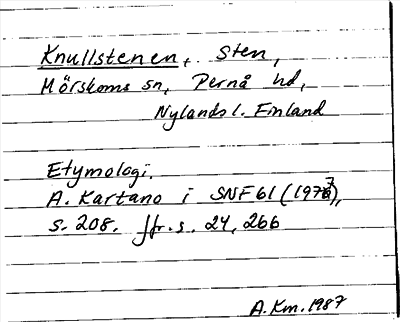 Knullstenen, sten,
Mörskoms sn, Pernå hd,
Nylands l. Finland
Etymologi.
A. Kartano i SNF 61 (1977),
s. 208. Jfr. s. 24, 266
A.Km. 1987